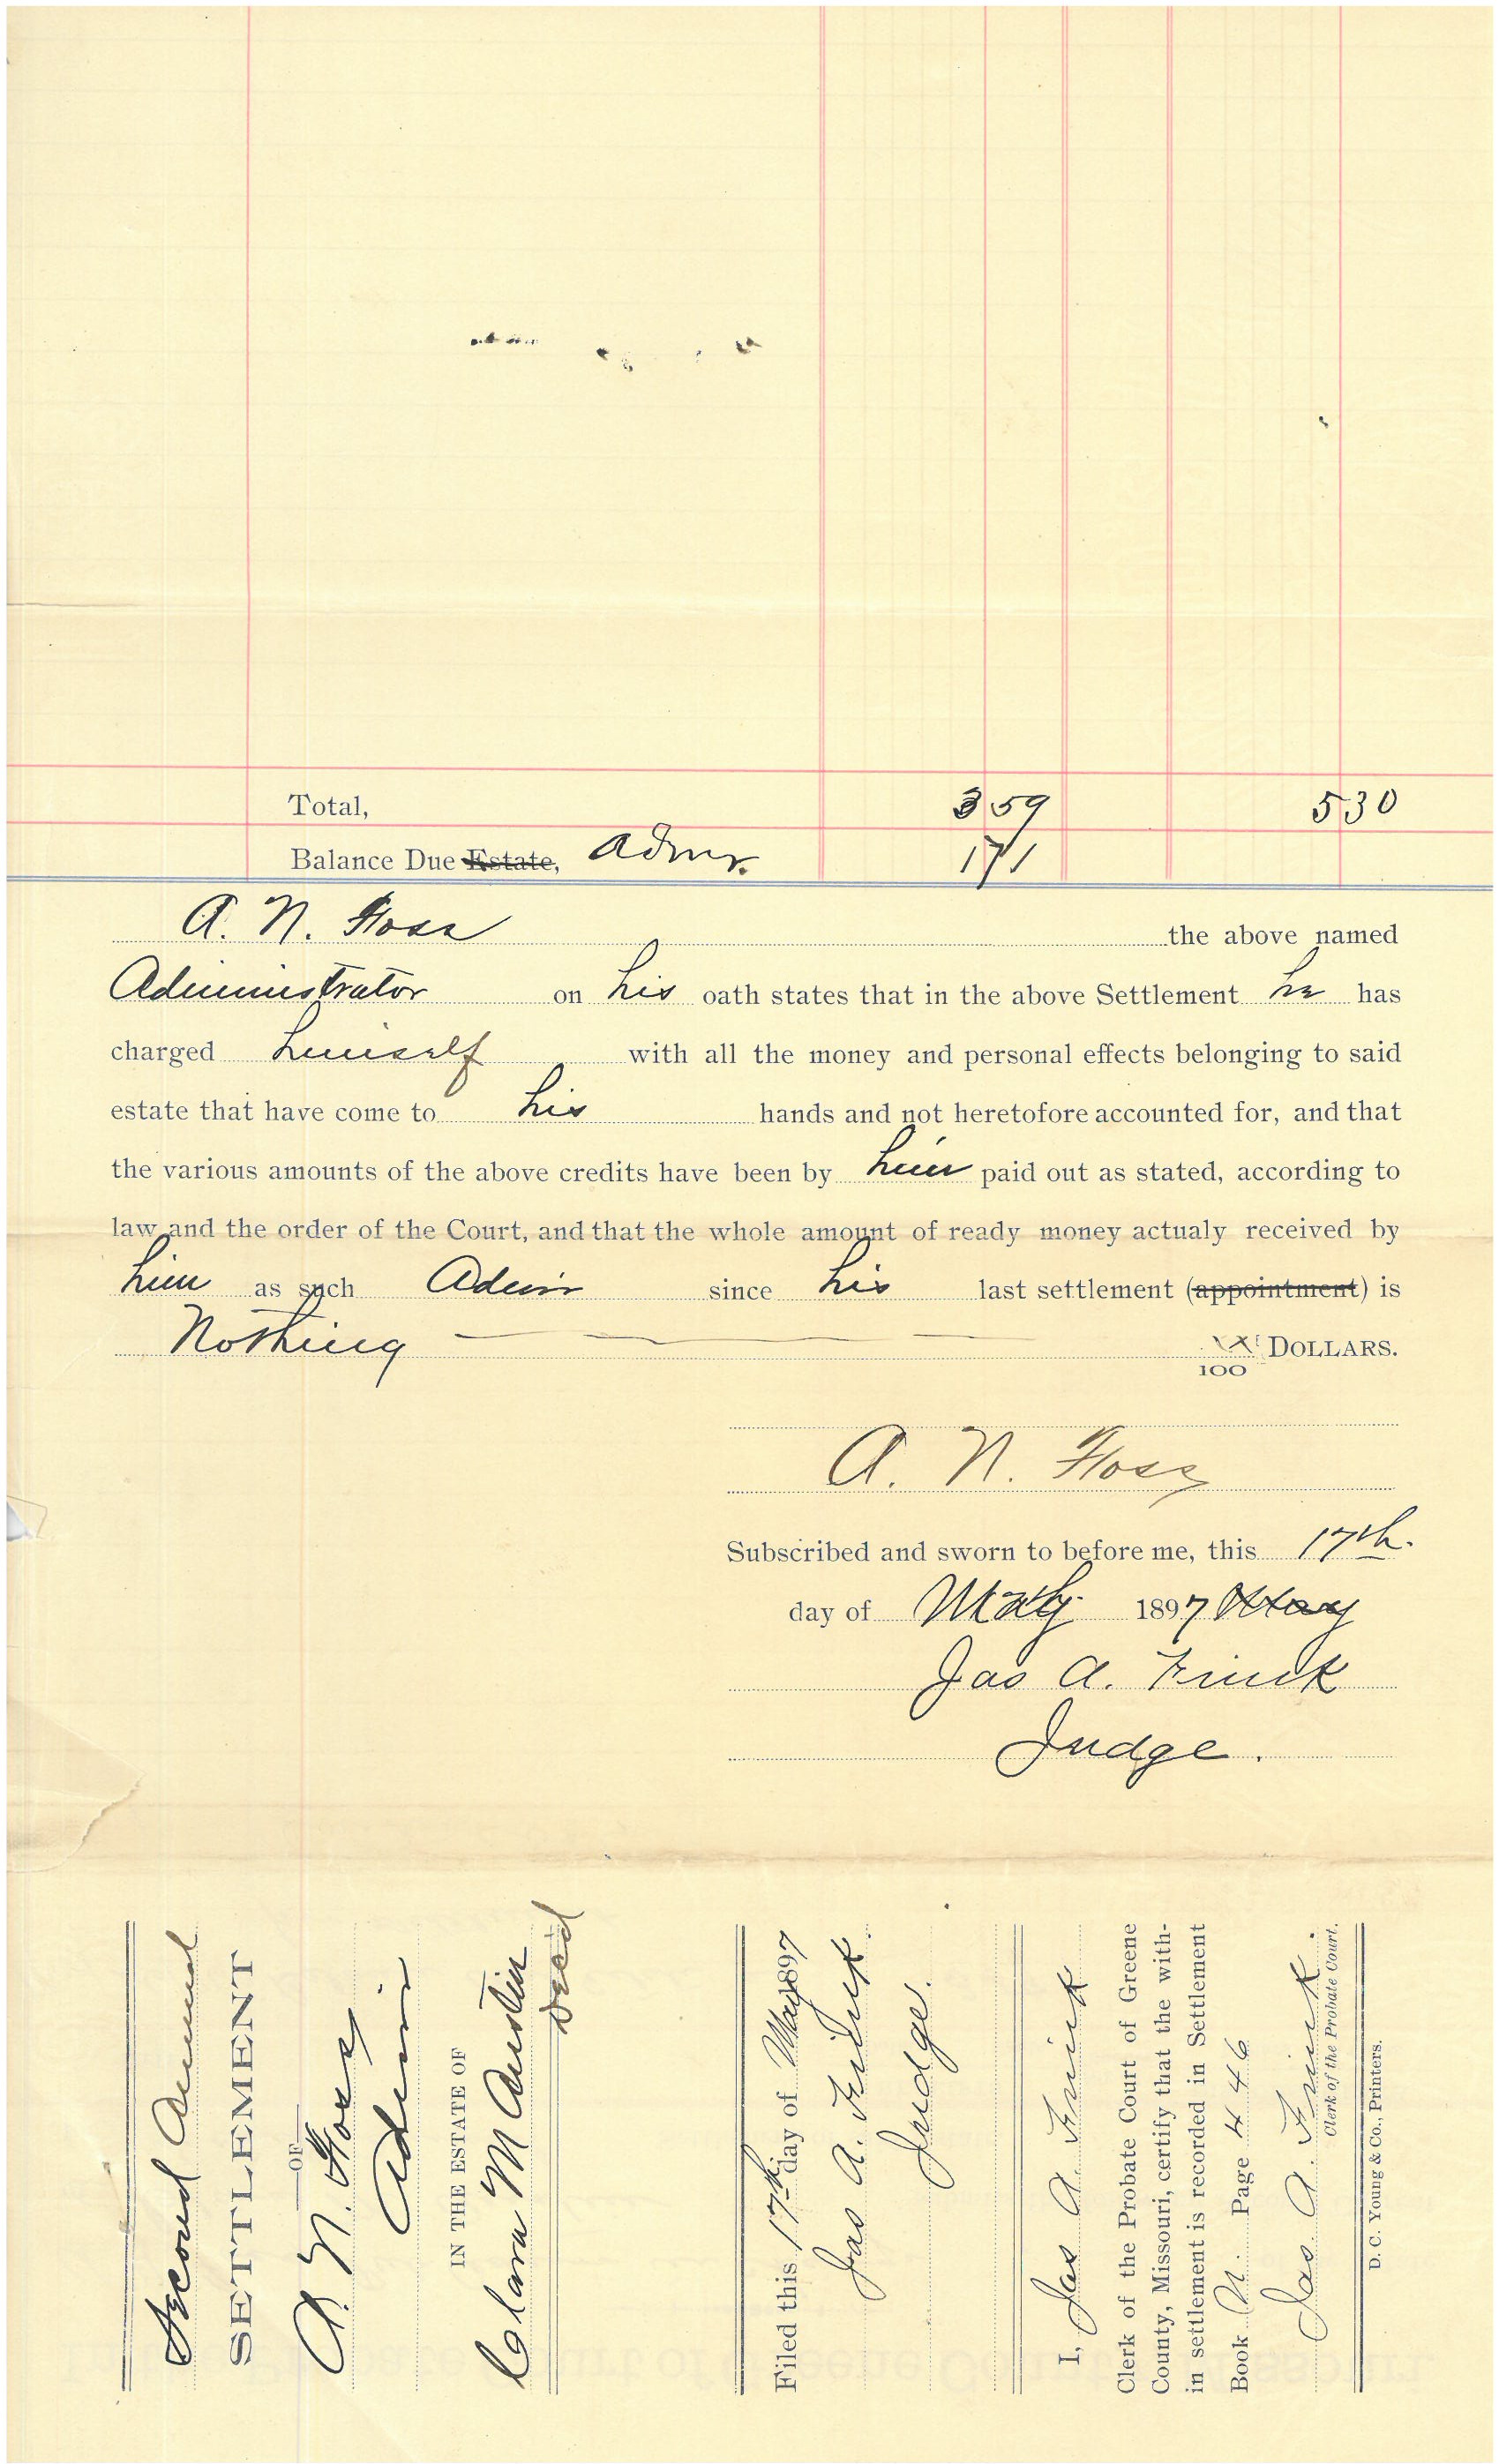 Total, 3 59 5 30
Balance Due Estate, Admr. 1 71
A. N. Hoss the above named
Administrator on his oath states that in the above Settlement he has
charged himself with all the money and personal effects belonging to said
estate that have come to his hands and not heretofore accounted for, and that
the various amounts of the above credits have been by him paid out as stated, according to
law and the order of the Court, and that the whole amount of ready money actualy received by
him as such Admr since his last settlement (appointment) is
Nothing 100 DOLLARS.
A. N. Hoss
Subscribed and sworn to before me, this 17th.
day of May 1897 May
Jas A. Frink
Judge.
Second Annual
SETTLEMENT
OF
A. N. Hoss
Admr
IN THE ESTATE OF
Clara M Austin
Decd
Filed this 17th day of May 1897
Jas A. Frink
Judge.
I, Jas A. Frink
Clerk of the Probate Court of Greene
County, Missouri, certify that the with-
in settlement is recorded in Settlement
Book N. Page 446
Jas A. Frink.
Clerk of the Probate Court.
D. C. Young & Co., Printers.